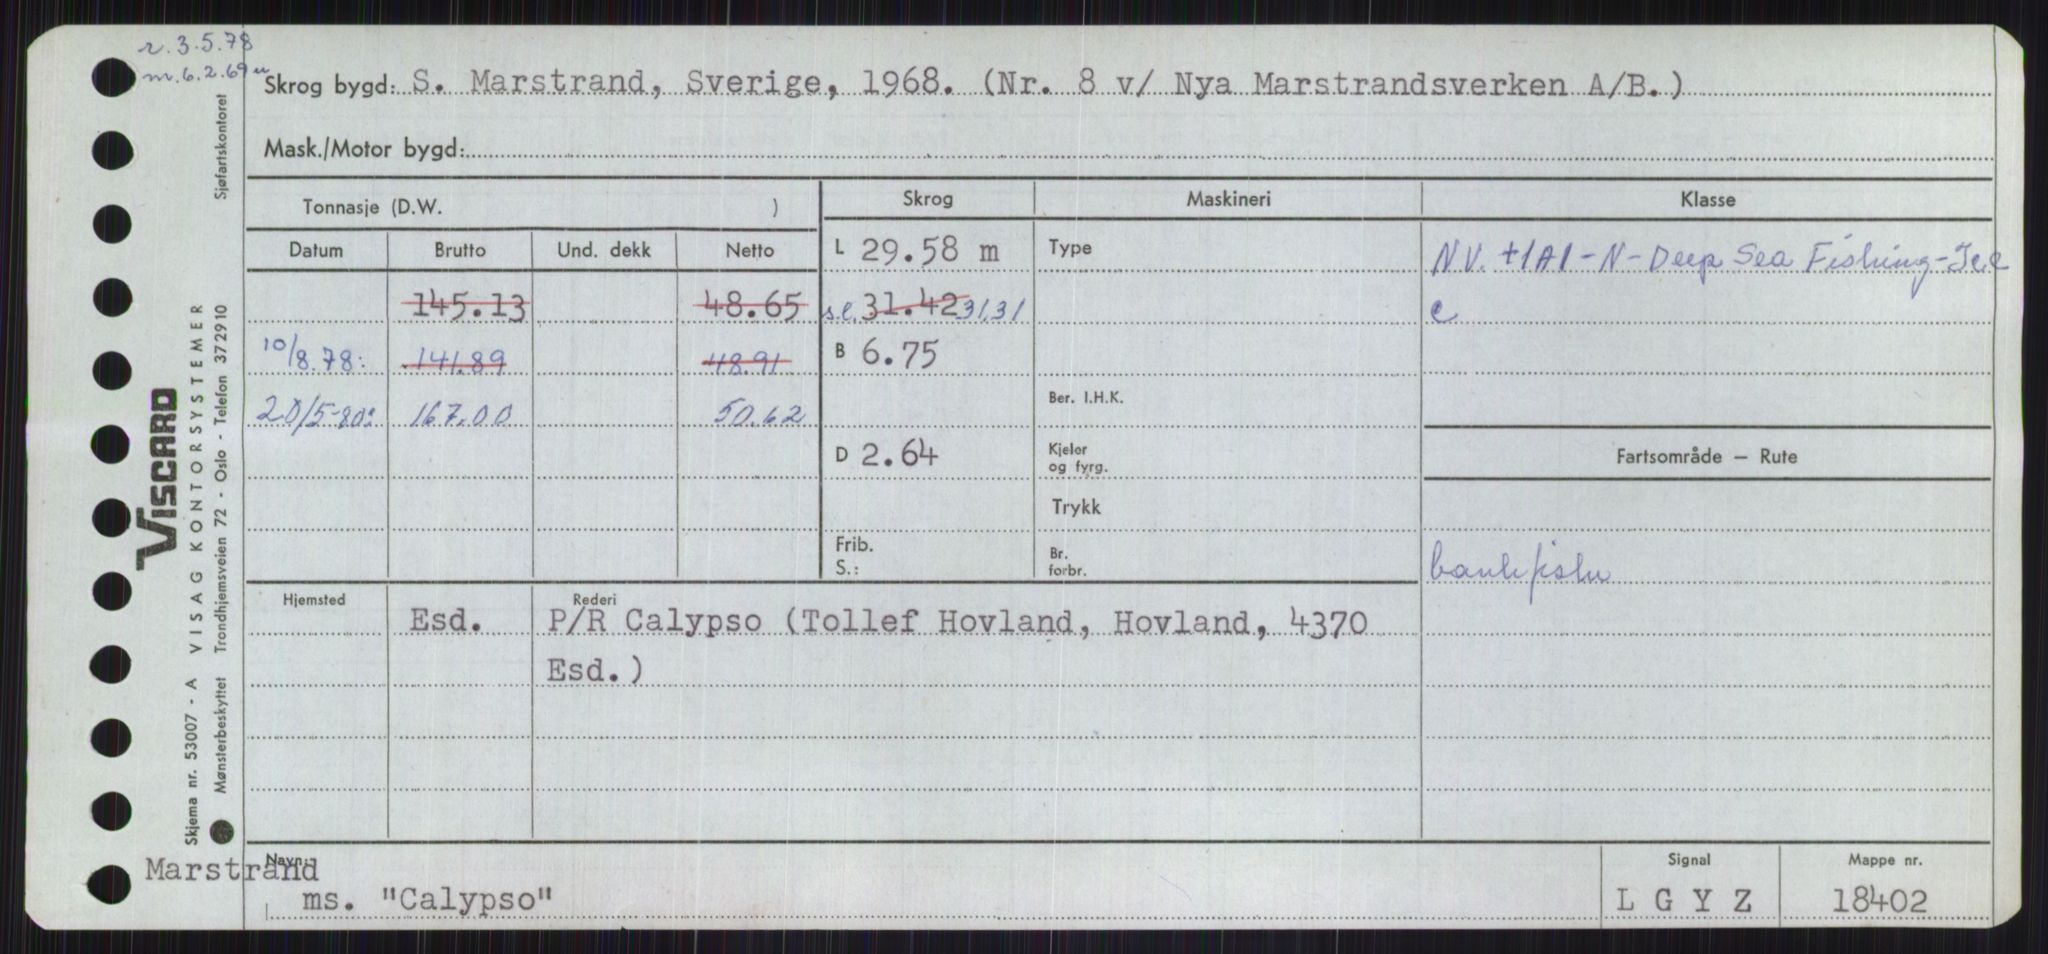 r. 3.5.78
m. 6.2.69
Skrog bygd: S. Marstrand, Sverige, 1968. (Nr. 8 v/ Nya Marstrandsverken A/B.)
Mask./Motor bygd:
Tonnasje (D.W. )
Skrog Maskineri Klasse
Datum Brutto Und. dekk Netto
L 29.58 m Type NV. +1A1-N-Deep Sea Fishing-Ice
145.13 48.65 s.l. 31.42 31,31 C
10/8.78: 141.89 48.91 B 6.75
20/5-80: 167.00 50.62 Ber. I.H.K.
D 2.64 Kjeler og fyrg. Fartsområde — Rute
Trykk
Frib. S.: Br. forbr. bankfiske
Hjemsted Rederi
Esd. P/R Calypso (Tollef Hovland, Hovland, 4370
Esd.)
Navn: Signal Mappe nr.
Marstrand
ms. "Calypso" L G Y Z 18402
VISCARD
Skjema nr. 53007 - A VISAG KONTORSYSTEMER
Mønsterbeskyttet Trondhjemsveien 72 - Oslo - Telefon 372910 Sjøfartskontoret